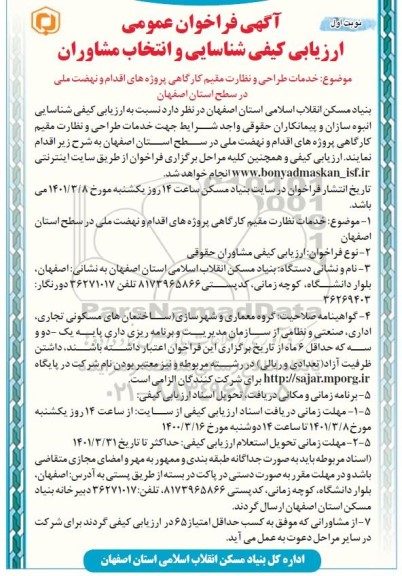 نوبت اول
آگهی فراخوان عمومی
ارزیابی کیفی شناسایی و انتخاب مشاوران
موضوع: خدمات طراحی و نظارت مقیم کارگاهی پروژه های اقدام و نهضت ملی
در سطح استان اصفهان
بنیاد مسکن انقلاب اسلامی استان اصفهان در نظر دارد نسبت به ارزیابی کیفی شناسایی
انبوه سازان و پیمانکاران حقوقی واجد شرایط جهت خدمات طراحی و نظارت مقیم
کارگاهی پروژه های اقدام و نهضت ملی در سطح استان اصفهان به شرح زیر اقدام
نمایند. ارزیابی کیفی و همچنین کلیه مراحل برگزاری فراخوان از طریق سایت اینترنتی
www.bonyadmaskan_isf.ir انجام خواهد شد.
تاریخ انتشار فراخوان در سایت بنیاد مسکن ساعت ۱۴ روز یکشنبه مورخ ۱۴۰۱/۳/۸ می
باشد.
۱- موضوع: خدمات نظارت مقیم کارگاهی پروژه های اقدام و نهضت ملی در سطح استان
اصفهان
۲- نوع فراخوان: ارزیابی کیفی مشاوران حقوقی
۳- نام و نشانی دستگاه: بنیاد مسکن انقلاب اسلامی استان اصفهان به نشانی: اصفهان،
بلوار دانشگاه، کوچه زمانی، کدپستی ۸۱۷۳۹۶۵۸۶۶ تلفن ۳۶۲۷۱۰۱۷ دورنگار:
۳۶۲۶۹۴۰۳
۴- گواهینامه صلاحیت: گروه معماری و شهرسازی (ساختمان های مسکونی تجاری،
اداری، صنعتی و نظامی از سازمان مدیریت و برنامه ریزی دارای پایه یک - دو و
سه که حداقل ۶ ماه از تاریخ برگزاری این فراخوان اعتبار داشته باشند، داشتن
ظرفیت آزاد (تعدادی و ریالی) در رشته مربوطه و نیز معتبر بودن نام شرکت در پایگاه
http://sajar.mporg.ir برای شرکت کنندگان الزامی است.
۵- برنامه زمانی و مکانی دریافت، تحویل اسناد ارزیابی کیفی:
۱-۵- مهلت زمانی دریافت اسناد ارزیابی کیفی از سایت: از ساعت ۱۴ روز یکشنبه
مورخ ۱۴۰۱/۳/۸ تا ساعت ۱۴ دوشنبه مورخ ۱۴۰۰/۳/۱۶
۲-۵- مهلت زمانی تحویل استعلام ارزیابی کیفی: حداکثر تا تاریخ ۱۴۰۱/۳/۳۱
(اسناد مربوطه باید به صورت جداگانه طبقه بندی و ممهور به مهر و امضای مجازی متقاضی
باشد و در مهلت مقرر به صورت دستی در پاکت در بسته از طریق پستی به آدرس: اصفهان،
بلوار دانشگاه، کوچه زمانی، کدپستی ۸۱۷۳۹۶۵۸۶۶، تلفن: ۳۶۲۷۱۰۱۷ دبیرخانه بنیاد
مسکن استان اصفهان ارسال گردند.
۷- از مشاورانی که موفق به کسب حداقل امتیاز ۶۵ در ارزیابی کیفی گردند برای شرکت
در سایر مراحل دعوت به عمل می آید.
اداره کل بنیاد مسکن انقلاب اسلامی استان اصفهان